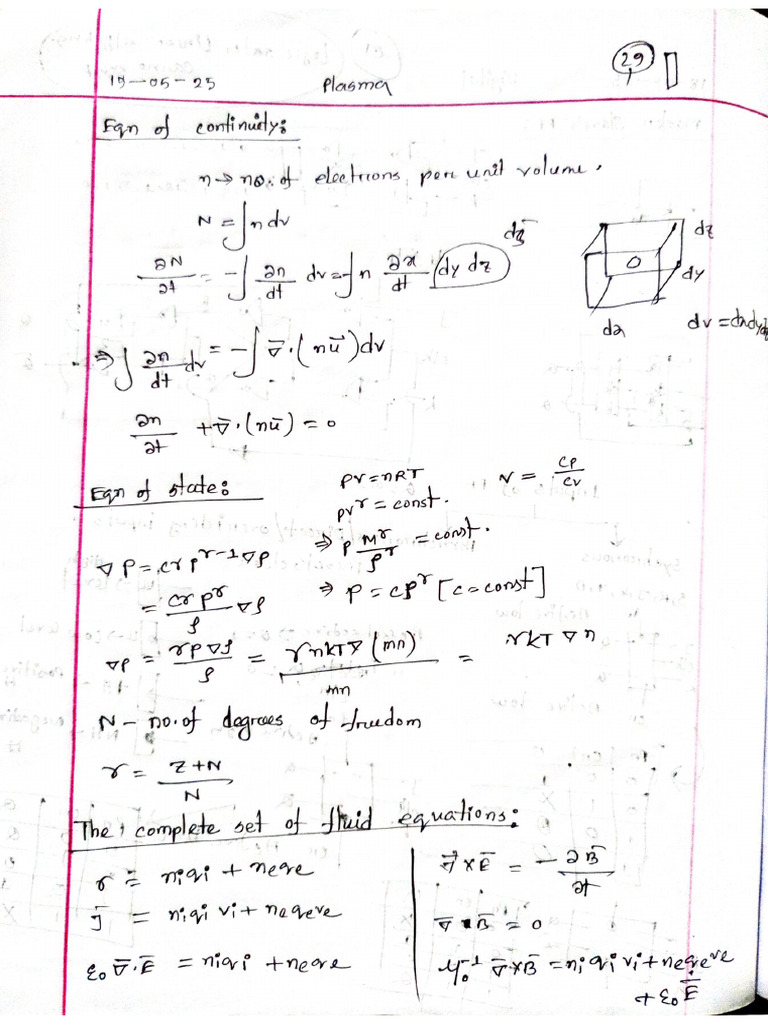 29
19-05-25 Plasma
Eqn of continuity:
n → no. of electrons per unit volume.
N = ∫ n dv
∂N/∂t = -∫ ∂n/dt dv = -∫ n ∂x/dt (dy dz)
dz
dy
dx
dv = dxdydz
⇒ ∫ ∂n/dt dv = -∫ ∇̄·(nū)dv
∂n/∂t + ∇̄·(nū) = 0
Eqn of state:
PV = nRT
γ = CP/CV
PVʳ = const.
∇P = crρʳ⁻¹∇ρ ⇒ P Mʳ/ρʳ = const.
= crρʳ/ρ ∇ρ ⇒ P = cρʳ [c = const]
∇ρ = rp∇ρ/ρ = rnkT∇(mn)/mn = rkT∇n
N – no. of degrees of freedom
r = Z+N/N
The complete set of fluid equations:
r = niqi + neqe
j̄ = niqi vi + neqeve
ε₀ ∇̄·Ē = niqi + neqe
∇̄×Ē = -∂B̄/∂t
∇̄·B̄ = 0
μ₀⁻¹ ∇̄×B̄ = niqi vi + neqeve
+ ε₀Ē